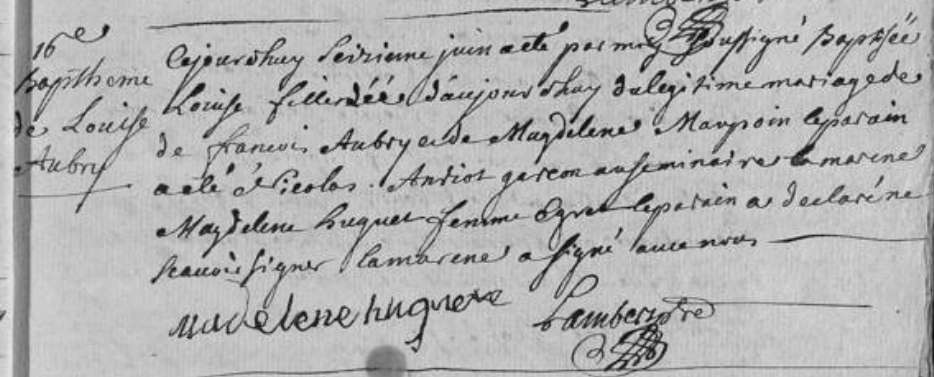 16e
Baptheme
de Louise
Aubry
Cejourdhuy Seizieme juin a eté par moy soussigné Baptisée
Louise fille née d'aujourdhuy du legitime mariage de
de francois Aubry et de Magdelene Maupoin le parain
a eté Nicolas Andiot garcon au seminaire la marene
Magdelene huguet femme le parain a declaré ne
scavoir signer la marene a signé avec nous
madelene huguet Lambert